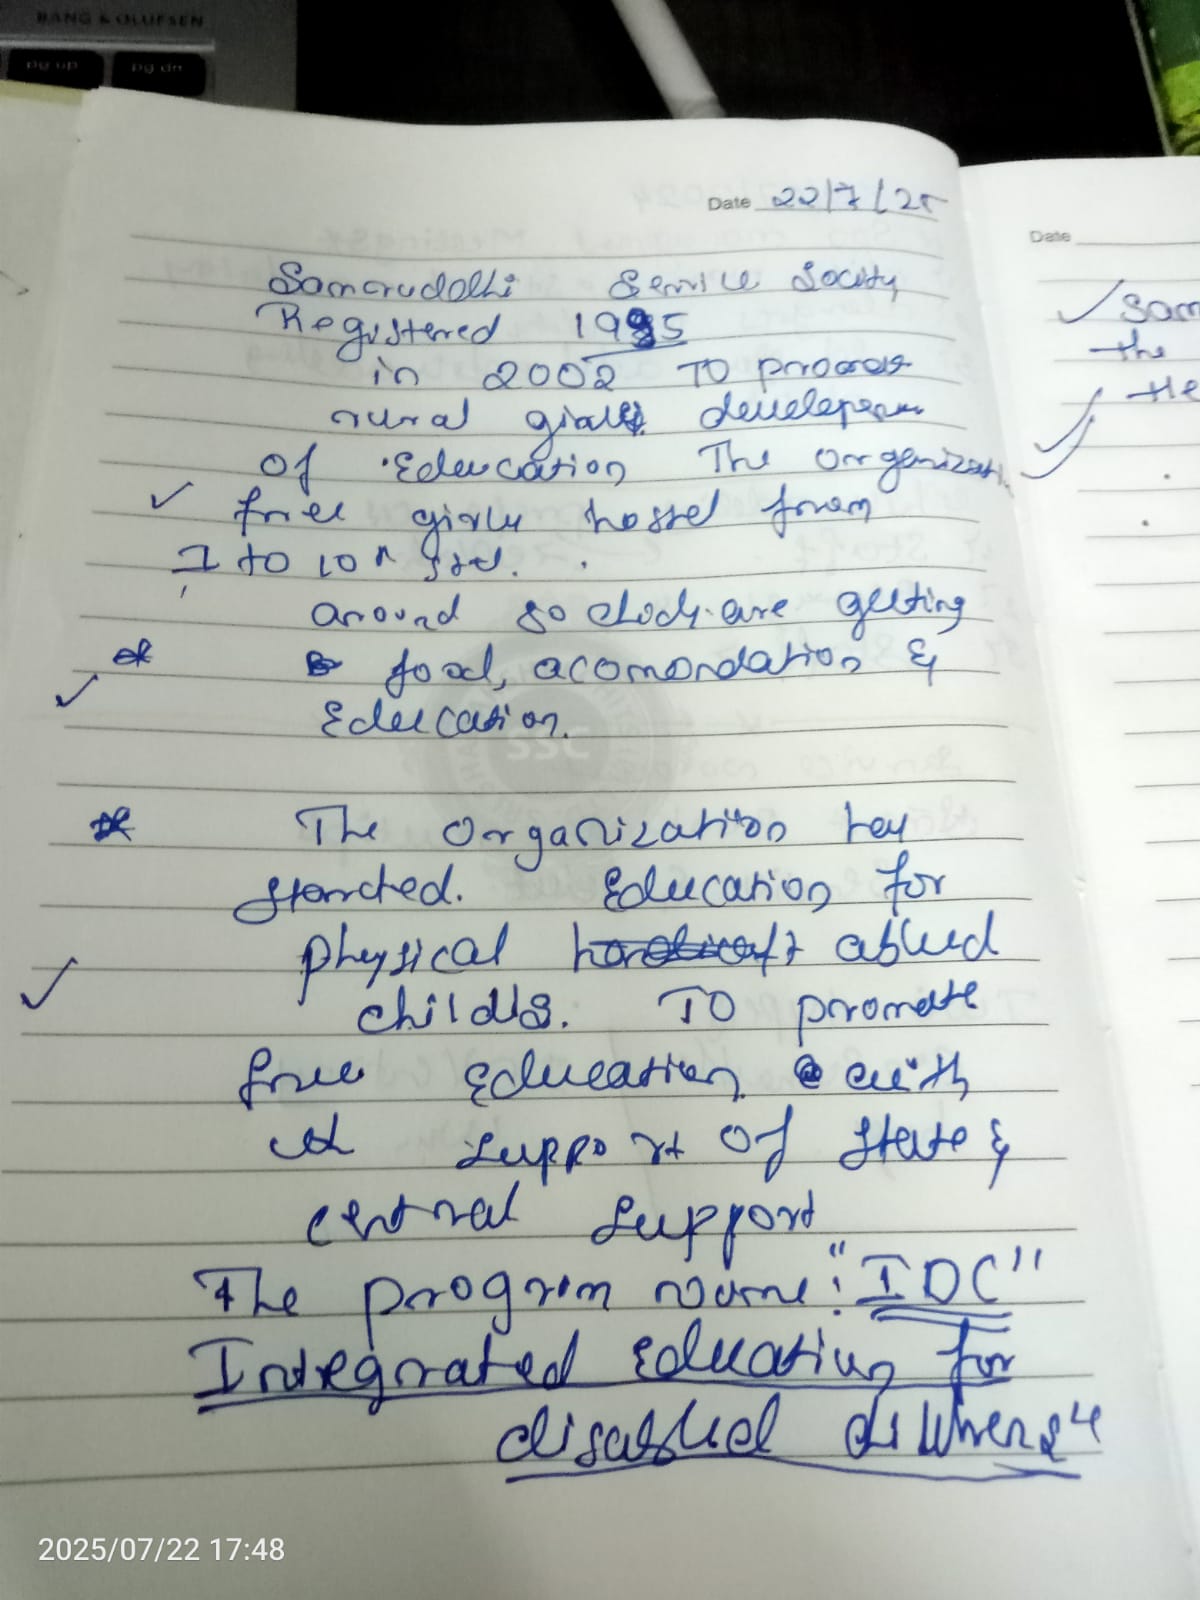 BANG & OLUFSEN
pg up pg dn
Date 22/7/25
Samaruddhi Service Socity
Registered 1995
in 2002 TO
rural girls
of Education The
free girls hostel from
1 to 10
around 80 are getting
food, acomondation &
Education.
SSC
The organization hay
started. Education for
physical abled
childs. TO promote
free Education with
support of State &
central support
The program name: "IDC"
Integrated Education for
disabled
Date
Sam
the
He
2025/07/22 17:48